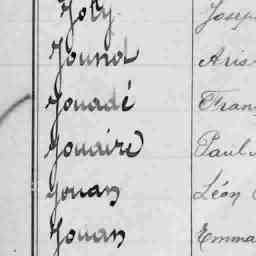 Joly Josep
Jound Aris
Jouadé Fran
Jouaire Paul
Jouan Léon
Jouan Emma